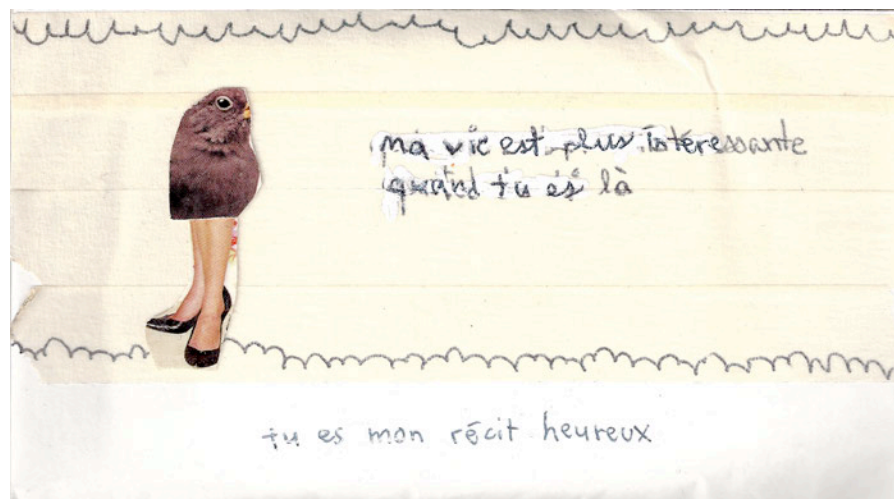 ma vie est plus intéressante
quand tu es là
tu es mon récit heureux